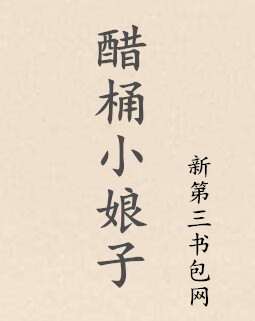 醋桶小娘子
新第三书包网